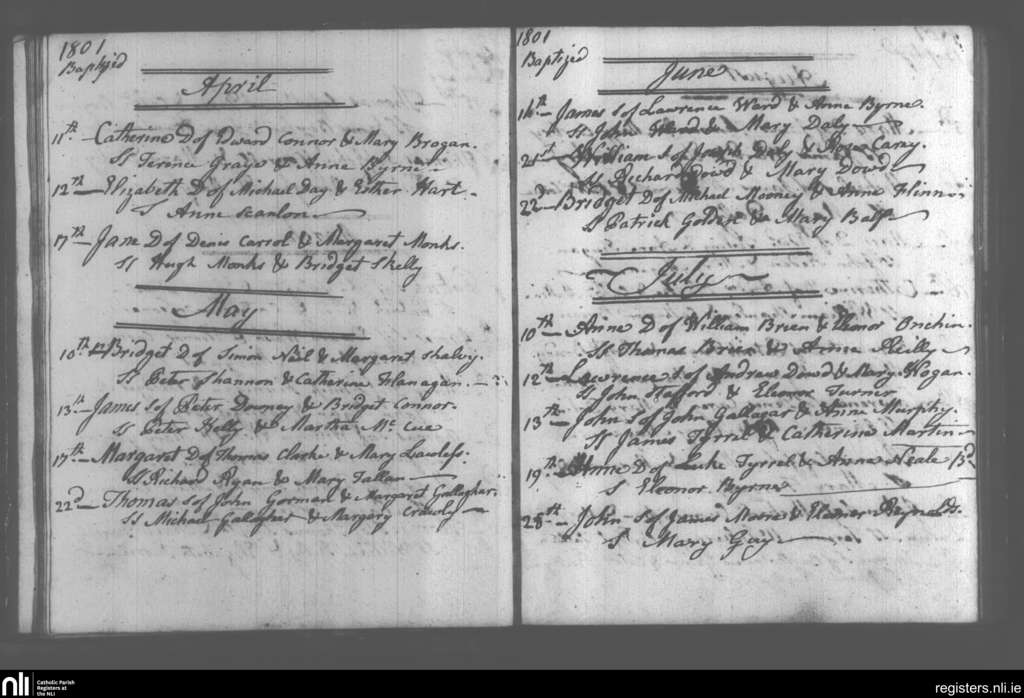 1801
Baptizd
April
11th – Catherine D of Edward Connor & Mary Brogan.
Ss Terence Graye & Anne Byrne
12th – Elizabeth D of Michael Day & Esther Hart.
S Anne Scanlon
17th – Jane D of Denis Carrol & Margaret Monks.
Ss Hugh Monks & Bridget Skelly
May
10th Bridget D of Simon Neil & Margaret Shalvy.
Ss Peter Shannon & Catherine Flanagan.
13th – James S of Peter Downey & Bridget Connor.
Ss Peter Kelly & Martha Mc Cue
17th – Margaret D of Thomas Clarke & Mary Lawless.
Ss Richard Ryan & Mary Fallan
22d – Thomas S of John Gorman & Margaret Gallaghar.
Ss Michael Gallagher & Margary Crawly
1801
Baptized
June
14th – James S of Lawrence Ward & Anne Byrne.
Ss John Ward & Mary Daly
21st William S of Joseph Daly & Rose Carey.
Ss Richard Dowd & Mary Dowd
22d – Bridget D of Michael Mooney & Anne Flinn
Ss Patrick Golden & Mary Balfe
July
10th – Anne D of William Brien & Eleonor
Ss Thomas Brien & Anne Reilly
12th – Lawrence S of Andrew Dowd & Mary Hogan.
Ss John Stafford & Eleonor Turner
13th – John S of John Gallagar & Anne Murphy.
Ss James Tyrril & Catherine Martin
19th – Anne D of Luke Tyrrel & Anne Neale
S Eleonor Byrne
28th – John S of James Moore & Eleanor Reynolds.
S Mary Gay
nli
Catholic Parish
Registers at
the NLI
registers.nli.ie